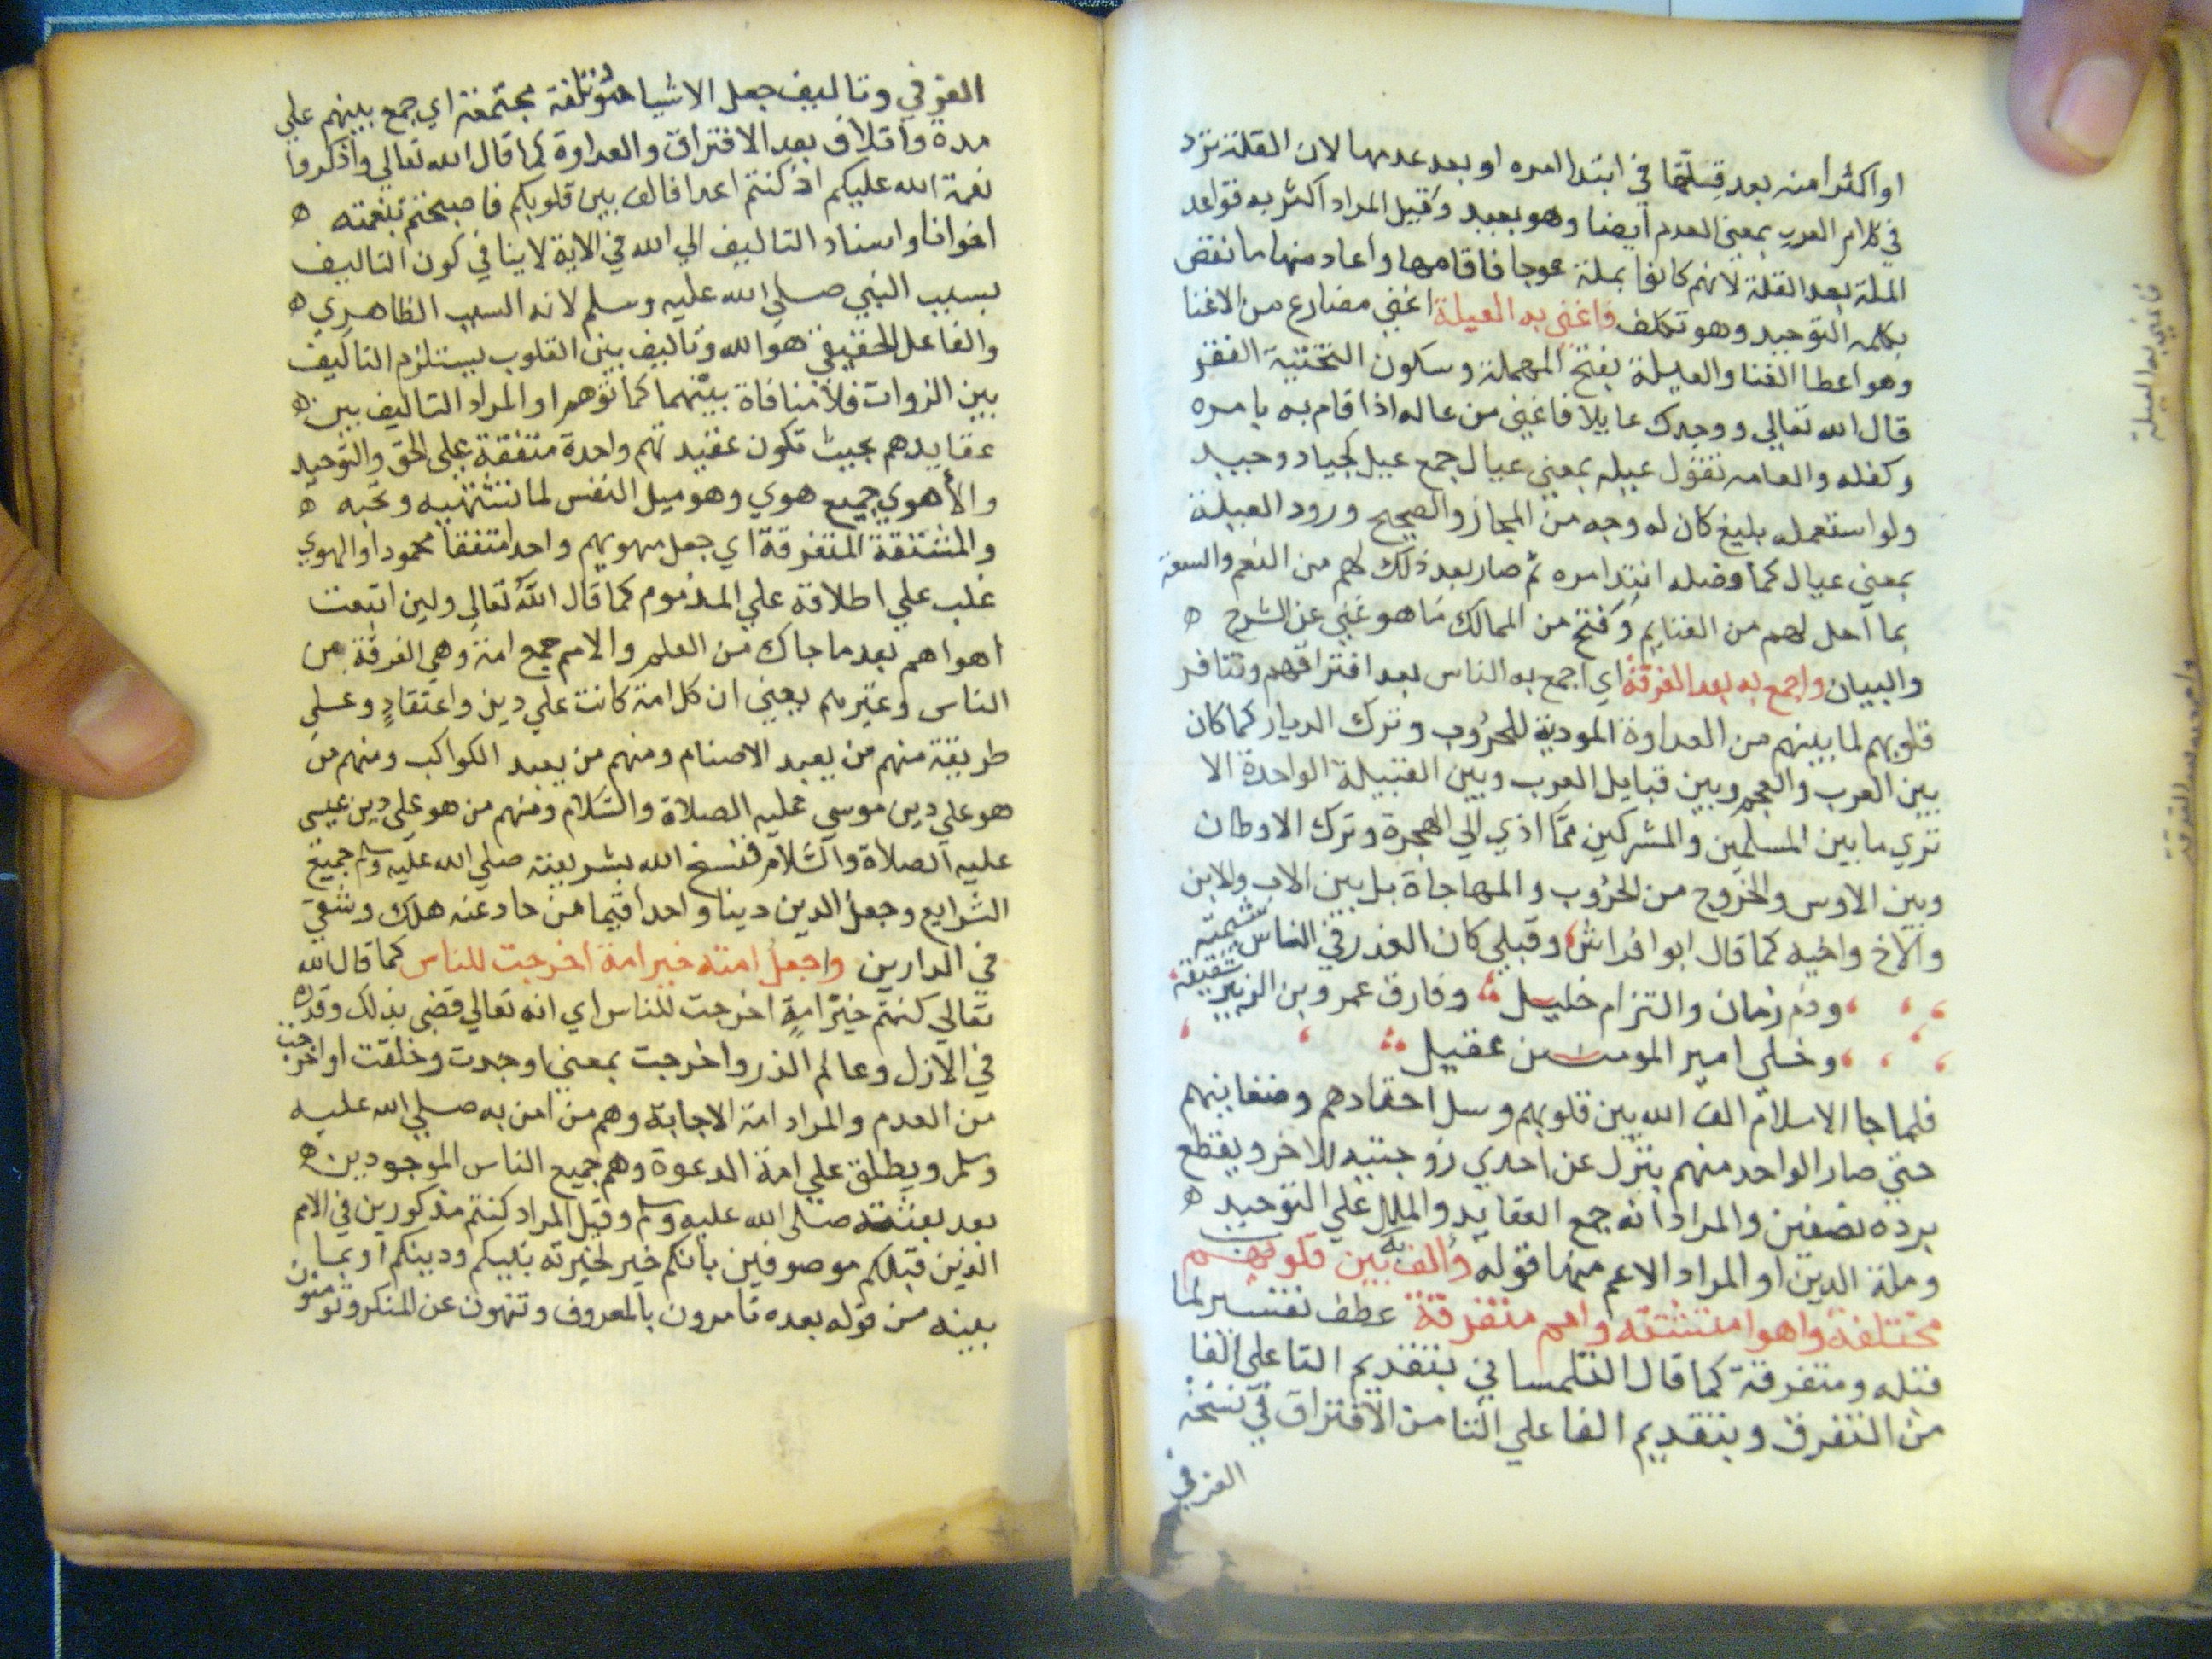 او اكثر امنه بعد قلتها في ابتدا امره او بعد عدمها لان القلة ترد
في كلام العرب بمعني العدم ايضا وهو بعيد وقيل المراد اكثر به قواعد
الملة بعد القلة لانهم كانوا بملة عوجا فاقامها واعاد منها ما نقض
بكلمه التوحيد وهو تكلف واغني به العيلة اغني مضارع من الاغنا
وهو اعطا الغنا والعيلة بفتح المهملة وسكون التحتية الفقر
قال الله تعالي ووجدك عايلا فاغني من عاله اذا قام به يامره
وكفله والعامه تقول عيله بمعني عيال جمع عيل كجياد وجيد
ولو استعمله بليغ كان له وجه من المجاز والصحيح ورود العيلة
بمعني عيال كما وضله ابتدا مره ثم صار بعد ذلك لهم من النعم والسعة
بما احل لهم من الغنايم وفتح من الممالك ما هو غني عن الشرح ه
والبيان واجمع به بعد الفرقة اي اجمع به الناس بعد افتراقهم وتنافر
قلوبهم لما بينهم من العداوة المودية للحروب وترك الديار كما كان
بين العرب والعجم وبين قبايل العرب وبين القبيلة الواحدة الا
تري ما بين المسلمين والمشركين مما ادي الي الهجرة وترك الاوطان
وبين الاوس والخزرج من الحروب والمهاجاة بل بين الاب والابن
والاخ واخيه كما قال ابو افراش وقبلي كان الغدر في الناس شيمة
وذم زمان والتزام خليل وفارق عمرو بن الزبير شقيقه
وخلي امير المومنين عقيل
فلما جا الاسلام الف الله بين قلوبهم وسل احقادهم وضغاينهم
حتي صار الواحد منهم ينزل عن احدي زوجتيه للاخر ويقطع
برده نصفين والمراد انه جمع العقايد والملل علي التوحيد ه
وملة الدين او المراد الاعم منها قوله وألف به بين قلوب
مختلفة واهوا متشتتة وامم متفرقة عطف تفسير لما
قبله ومتفرقة كما قال التلمساني بتقديم التا علي الفا
من التفرق وبتقديم الفا علي التا من الافتراق في نسخة
العزفي
فاغني به العيلة
واجمع به بعد الفرقة
العزفي وتاليف جعل الاشيا مؤتلفة مجتمعة اي جمع بينهم علي
مدة وآتلاف بعد الافتراق والعداوة كما قال الله تعالي واذكروا
نعمة الله عليكم اذ كنتم اعدا فالف بين قلوبكم فاصبحتم بنعمته ه
اخوانا واسناد التاليف الي الله في الاية لا ينافي كون التاليف
بسبب النبي صلي الله عليه وسلم لانه السبب الظاهري ه
والفاعل الحقيقي هو الله وتاليف بين القلوب يستلزم التاليف
بين الذوات فلا منافاة بينهما كما توهم او المراد التاليف بين ه
عقايدهم بحيث تكون عقيدتهم واحدة متفقة علي الحق والتوحيد
والأهوي جميع هوي وهو ميل النفس لما تشتهيه وتحبه ه
والمتشتتة المتفرقة اي جعل مهويهم واحدا متفقا محمودا والهوي
غلب علي اطلاقة علي المذموم كما قال الله تعالي ولين اتبعت
اهواهم بعد ما جاك من العلم والامم جمع امة وهي الفرقة من
الناس وغيرهم يعني ان كل امة كانت علي دين واعتقاد وعلي
طريقة منهم من يعبد الاصنام ومنهم من يعبد الكواكب ومنهم من
هو علي دين موسي عليه الصلاة والسلام ومنهم من هو علي دين عيسي
عليه الصلاة والسلام فنسخ الله بشريعته صلي الله عليه وسلم جميع
الشرايع وجعل الدين دينا واحدا قيما من حاد عنه هلك وشقي
في الدارين واجعل امته خير امة اخرجت للناس كما قال الله
تعالي كنتم خير امة اخرجت للناس اي انه تعالي قضي بذلك وقدره
في الازل وعالم الذر واخرجت بمعني اوجدت وخلقت او اخرجت
من العدم والمراد امة الاجابة وهم من امن به صلي الله عليه
وسلم ويطلق علي امة الدعوة وهم جميع الناس الموجودين ه
بعد بعثته صلي الله عليه وسلم وقيل المراد كنتم مذكورين في الامم
الذين قبلكم موصوفين بانكم خير لخيرته نبيكم ودينكم او بما
بينه من قوله بعده تامرون بالمعروف وتنهون عن المنكر وتومنون